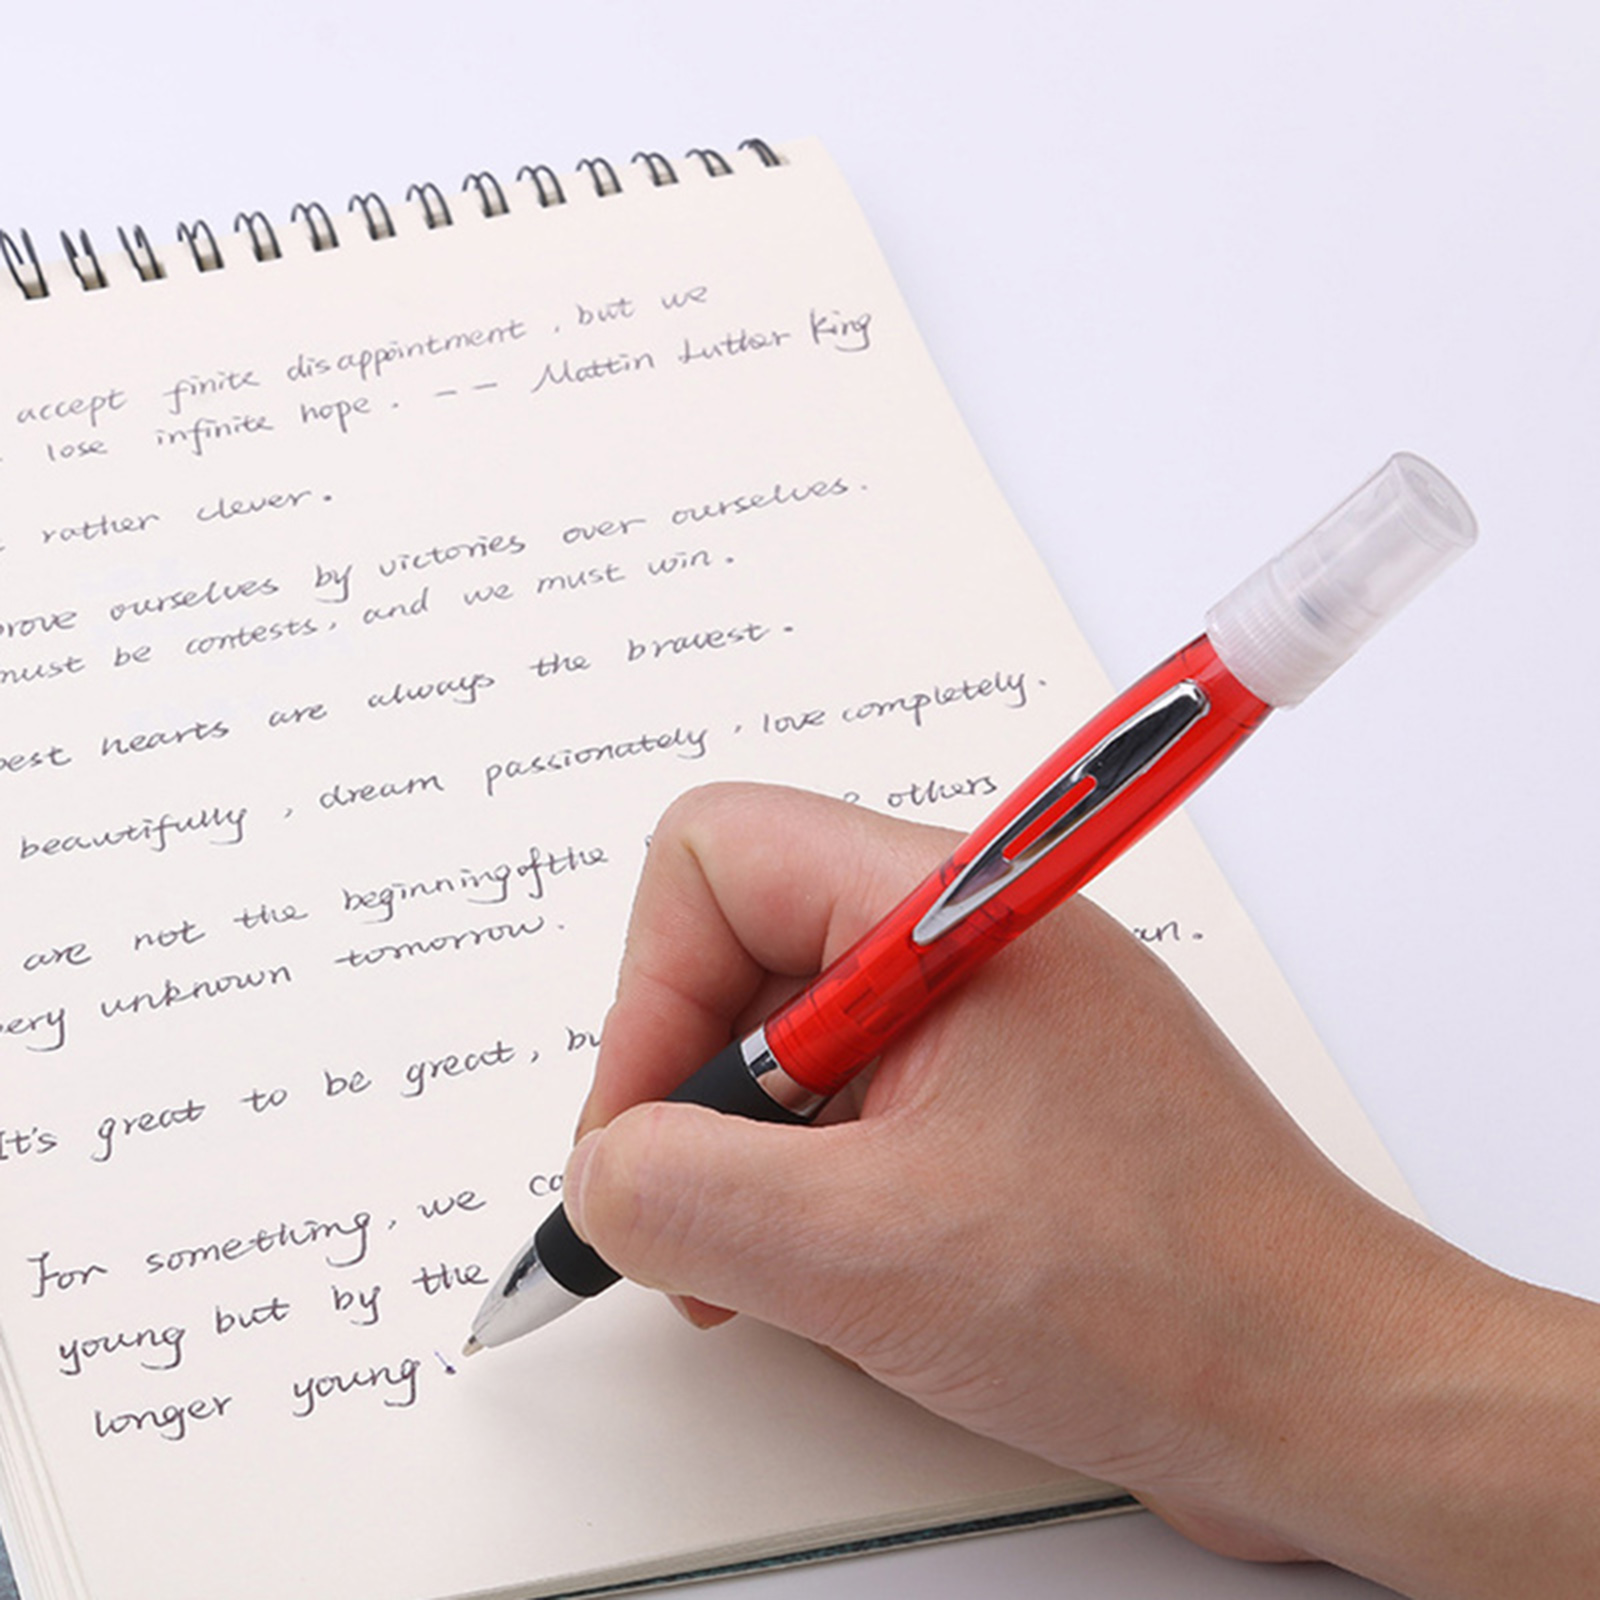 accept finite disappointment, but we
lose infinite hope. -- Mattin Luther King
rather clever.
prove ourselves by victories over ourselves.
must be contests, and we must win.
best hearts are always the bravest.
beautifully, dream passionately, love completely.
others
are not the beginning of the
very unknown tomorrow.
an.
It's great to be great, bu
For something, we co
young but by the
longer young.